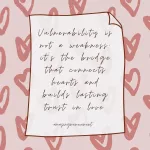 Vulnerability is
not a weakness,
it's the bridge
that connects
hearts and
builds lasting
trust in love